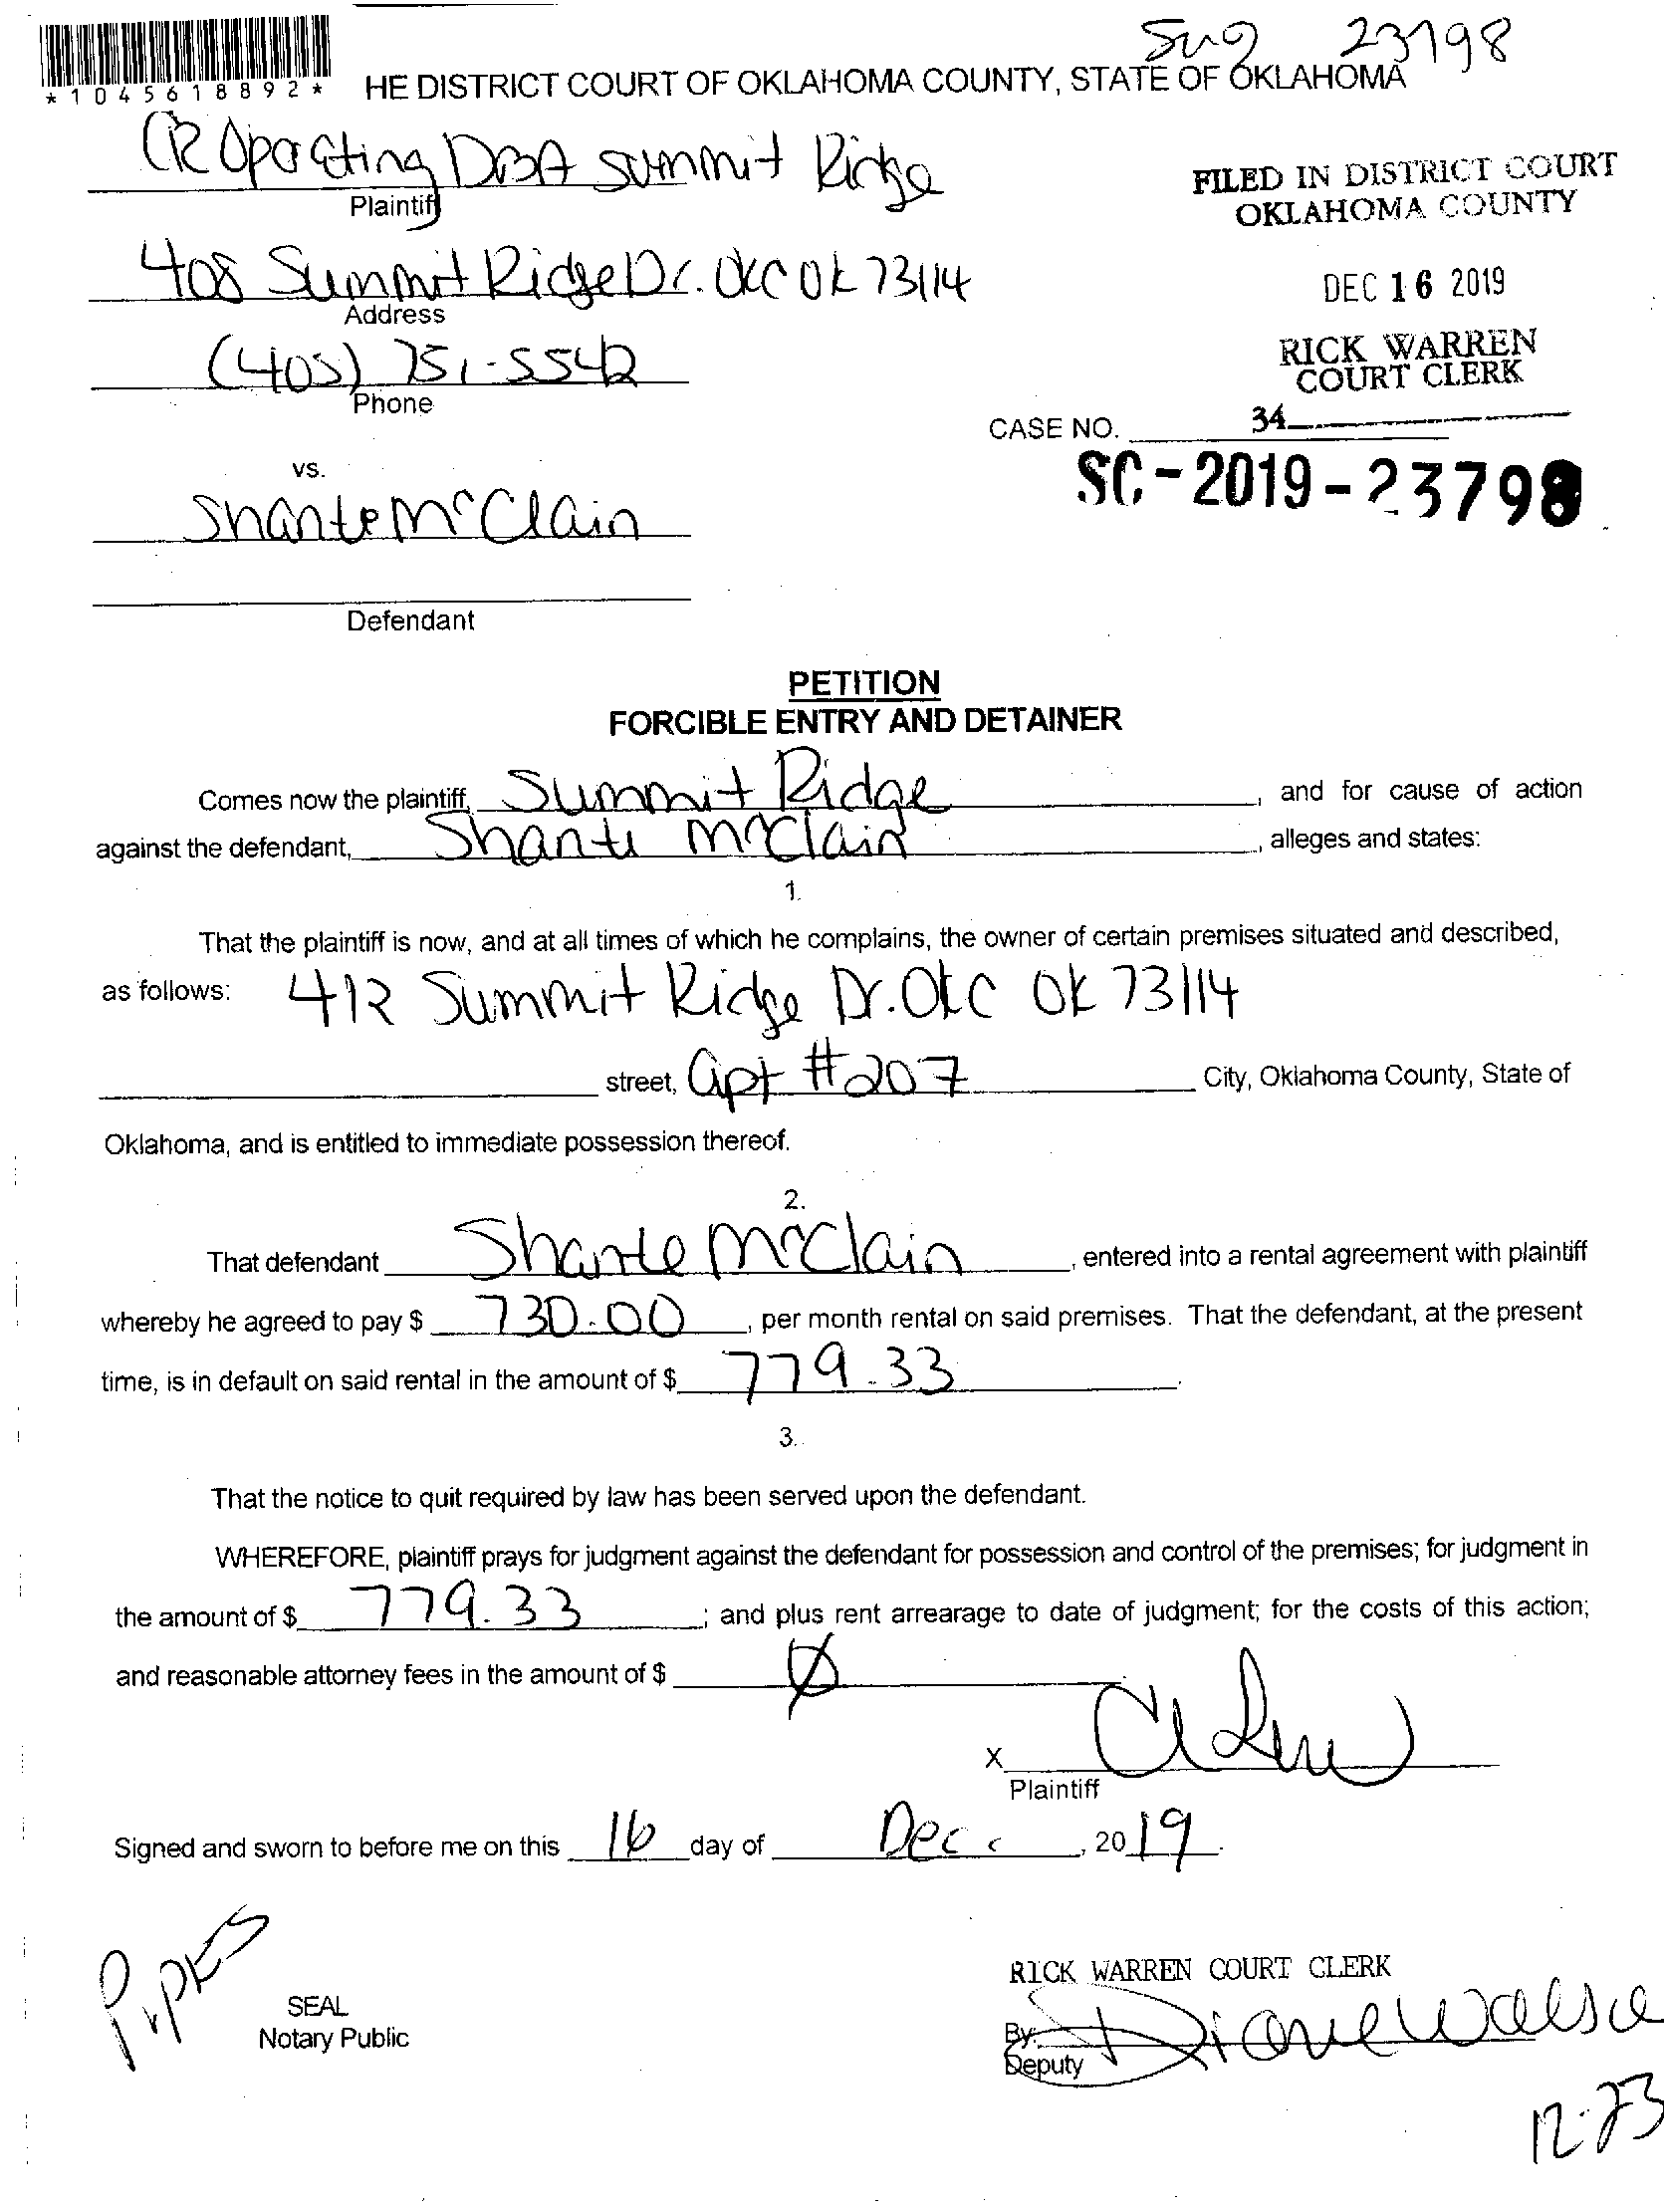 23798
*1045618892*
HE DISTRICT COURT OF OKLAHOMA COUNTY, STATE OF OKLAHOMA
CR Operating DBA Summit Ridge
Plaintiff
FILED IN DISTRICT COURT
OKLAHOMA COUNTY
408 Summit Ridge Dr. OKC OK 73114
Address
DEC 16 2019
(405) 751-5542
Phone
RICK WARREN
COURT CLERK
34
CASE NO.
SC-2019-23798
vs.
Shante McClain
Defendant
PETITION
FORCIBLE ENTRY AND DETAINER
Comes now the plaintiff, Summit Ridge, and for cause of action
against the defendant, Shante McClain, alleges and states:
1.
That the plaintiff is now, and at all times of which he complains, the owner of certain premises situated and described,
as follows: 412 Summit Ridge Dr. OKC OK 73114
street, apt #207 City, Oklahoma County, State of
Oklahoma, and is entitled to immediate possession thereof.
2.
That defendant Shante McClain, entered into a rental agreement with plaintiff
whereby he agreed to pay $ 730.00, per month rental on said premises. That the defendant, at the present
time, is in default on said rental in the amount of $ 779.33.
3.
That the notice to quit required by law has been served upon the defendant.
WHEREFORE, plaintiff prays for judgment against the defendant for possession and control of the premises; for judgment in
the amount of $ 779.33; and plus rent arrearage to date of judgment; for the costs of this action;
and reasonable attorney fees in the amount of $ Ø
X
Plaintiff
Signed and sworn to before me on this 16 day of Dec., 2019.
SEAL
Notary Public
RICK WARREN COURT CLERK
By:
Deputy
12-23